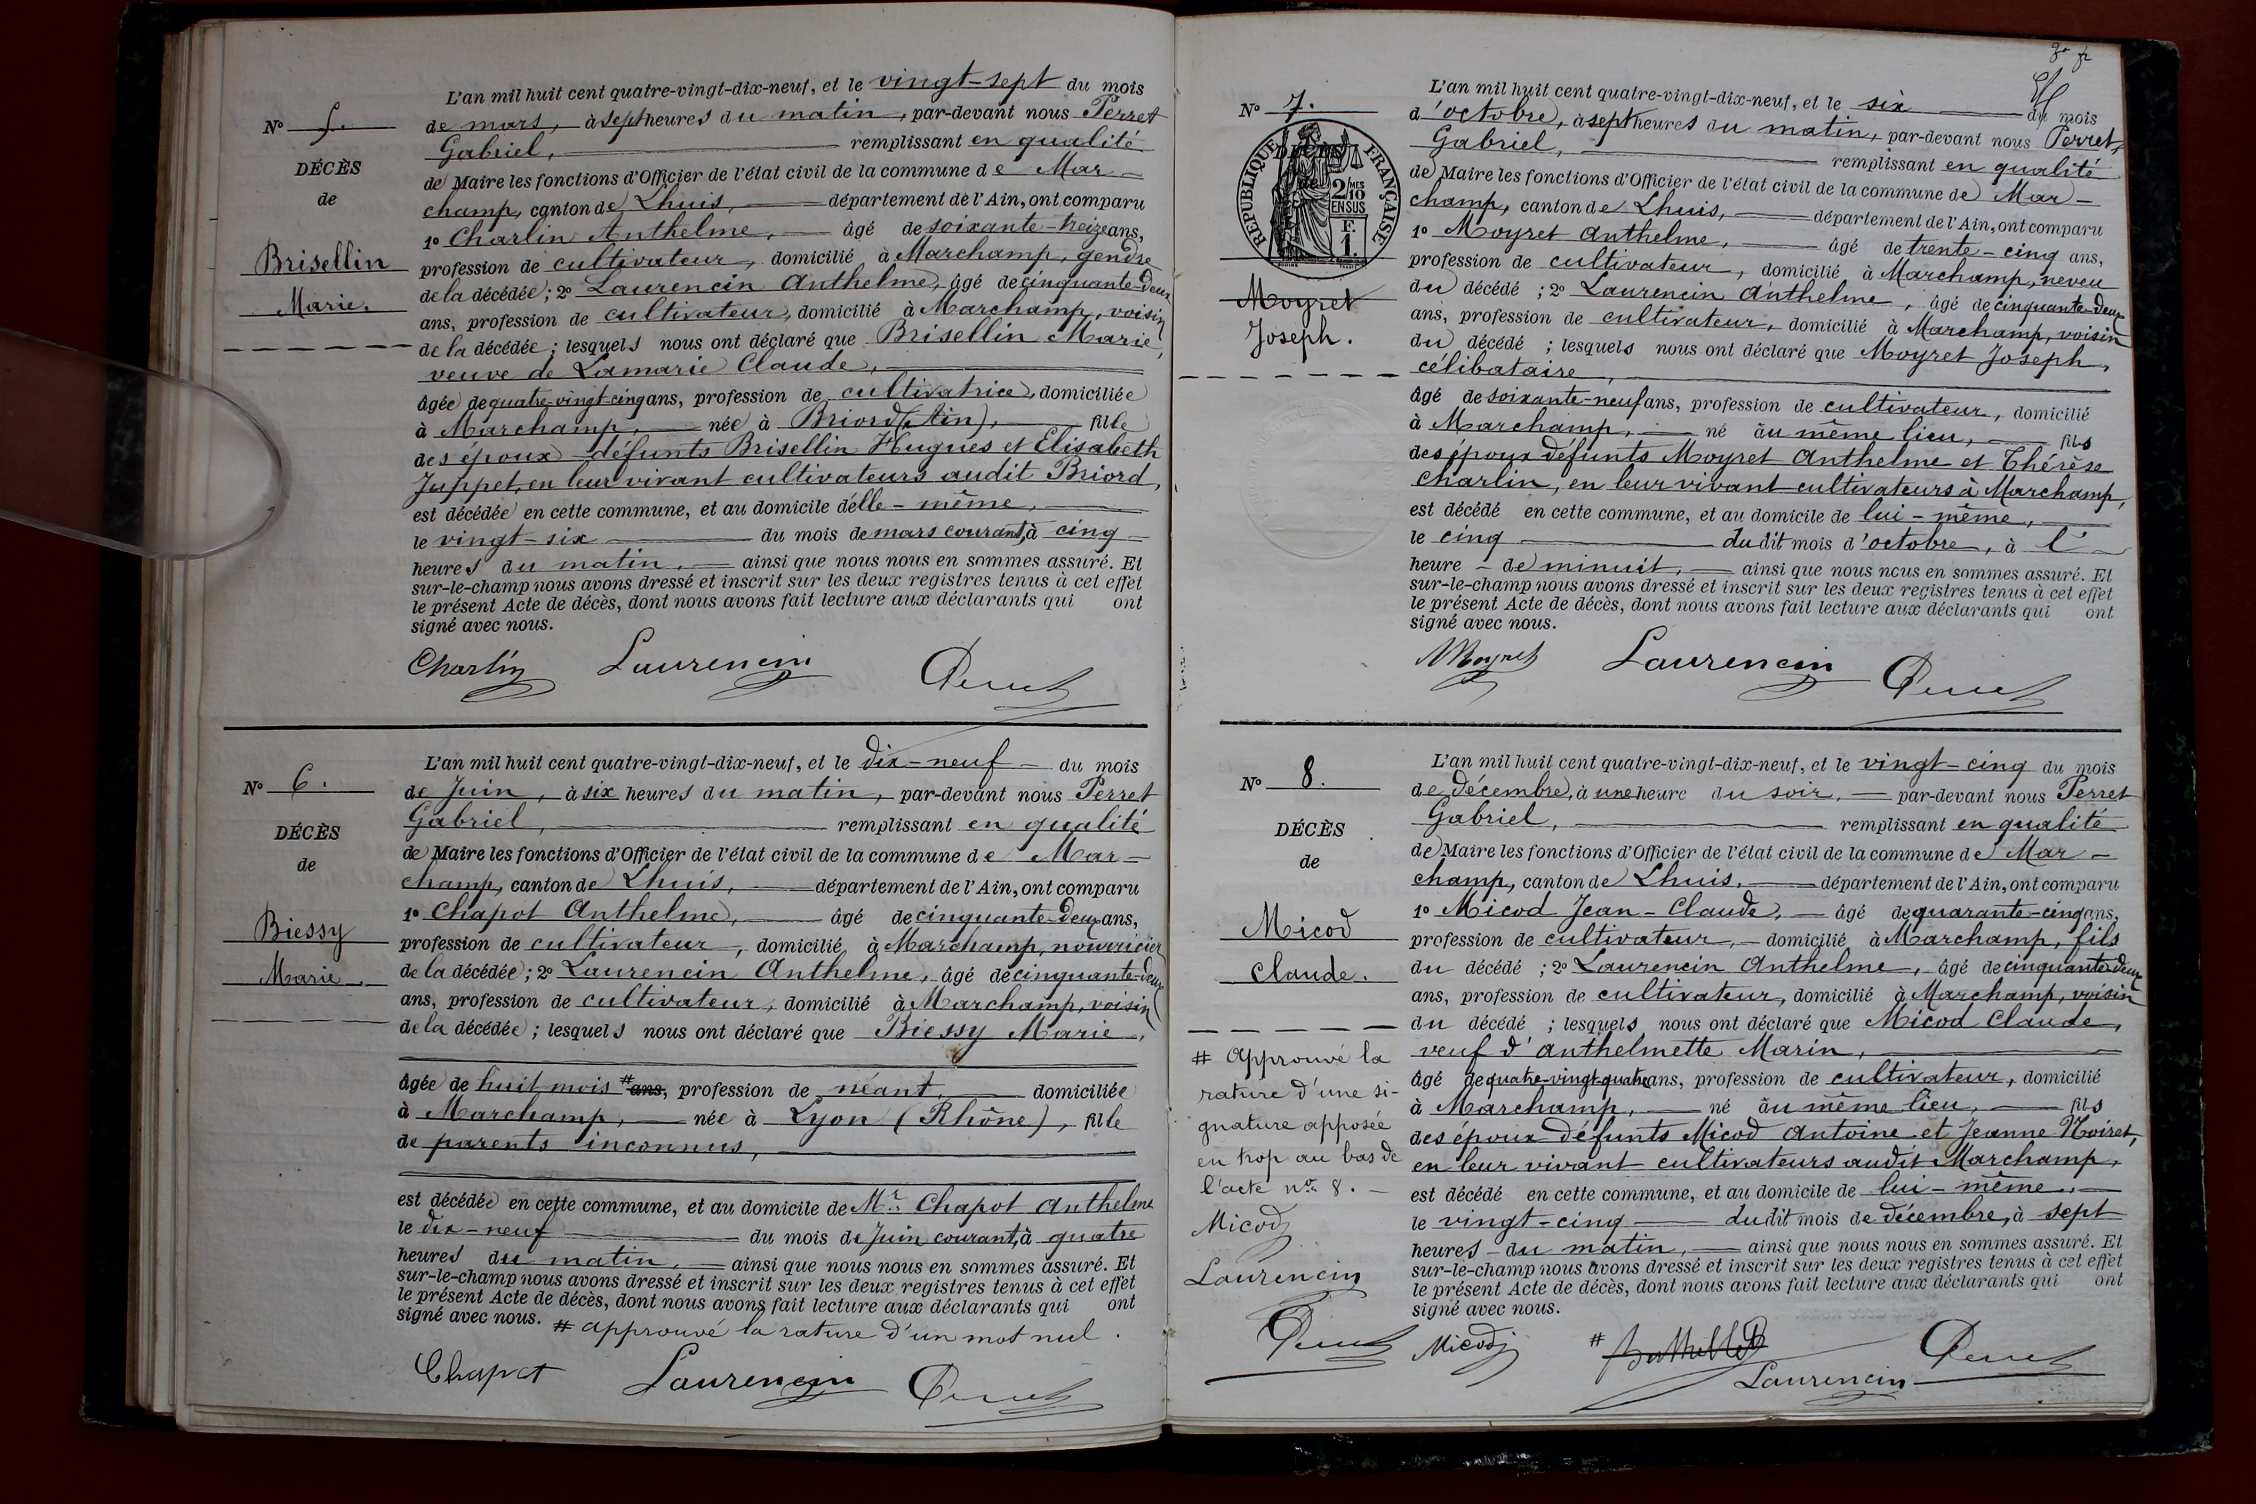 N° 5.
DÉCÈS
de
Brisellin
Marie.
L'an mil huit cent quatre-vingt-dix-neuf, et le vingt-sept du mois
de mars, à sept heures du matin, par-devant nous Perret
Gabriel, remplissant en qualité
de Maire les fonctions d'Officier de l'état civil de la commune de Mar-
champ, canton de Lhuis, département de l'Ain, ont comparu
1° Charlin Anthelme, âgé de soixante-treize ans,
profession de cultivateur, domicilié à Marchamp, gendre
de la décédée; 2° Laurencin Anthelme, âgé de cinquante-deux
ans, profession de cultivateur, domicilié à Marchamp, voisin
de la décédée; lesquels nous ont déclaré que Brisellin Marie,
veuve de Lamarie Claude,
âgée de quatre-vingt-cinq ans, profession de cultivatrice, domiciliée
à Marchamp, née à Briord (Ain), fille
des époux défunts Brisellin Hugues et Elisabeth
Juppet, en leur vivant cultivateurs audit Briord,
est décédée en cette commune, et au domicile d'elle-même,
le vingt-six du mois de mars courant, à cinq
heures du matin, ainsi que nous nous en sommes assuré. Et
sur-le-champ nous avons dressé et inscrit sur les deux registres tenus à cet effet
le présent Acte de décès, dont nous avons fait lecture aux déclarants qui ont
signé avec nous.
Charlin Laurencin Perret
N° 6.
DÉCÈS
de
Biessy
Marie
L'an mil huit cent quatre-vingt-dix-neuf, et le dix-neuf du mois
de Juin, à six heures du matin, par-devant nous Perret
Gabriel, remplissant en qualité
de Maire les fonctions d'Officier de l'état civil de la commune de Mar-
champ, canton de Lhuis, département de l'Ain, ont comparu
1° Chapot Anthelme, âgé de cinquante-deux ans,
profession de cultivateur, domicilié à Marchamp, nourricier
de la décédée; 2° Laurencin Anthelme, âgé de cinquante-deux
ans, profession de cultivateur, domicilié à Marchamp, voisin
de la décédée; lesquels nous ont déclaré que Biessy Marie,
âgée de huit mois # ans, profession de néant, domiciliée
à Marchamp, née à Lyon (Rhône), fille
de parents inconnus,
est décédée en cette commune, et au domicile de Mr. Chapot Anthelme
le dix-neuf du mois de Juin courant, à quatre
heures du matin, ainsi que nous nous en sommes assuré. Et
sur-le-champ nous avons dressé et inscrit sur les deux registres tenus à cet effet
le présent Acte de décès, dont nous avons fait lecture aux déclarants qui ont
signé avec nous. # approuvé la rature d'un mot nul.
Chapot Laurencin Perret
N° 7.
DÉCÈS
de
RÉPUBLIQUE FRANÇAISE
2/10 MES
EN SUS
F.
1.
Moyret
Joseph.
L'an mil huit cent quatre-vingt-dix-neuf, et le six du mois
d'octobre, à sept heures du matin, par-devant nous Perret,
Gabriel, remplissant en qualité
de Maire les fonctions d'Officier de l'état civil de la commune de Mar-
champ, canton de Lhuis, département de l'Ain, ont comparu
1° Moyret Anthelme, âgé de trente-cinq ans,
profession de cultivateur, domicilié à Marchamp, neveu
du décédé; 2° Laurencin Anthelme, âgé de cinquante-deux
ans, profession de cultivateur, domicilié à Marchamp, voisin
du décédé; lesquels nous ont déclaré que Moyret Joseph,
célibataire,
âgé de soixante-neuf ans, profession de cultivateur, domicilié
à Marchamp, né au même lieu, fils
des époux défunts Moyret Anthelme et Thérèse
Charlin, en leur vivant cultivateurs à Marchamp,
est décédé en cette commune, et au domicile de lui-même,
le cinq dudit mois d'octobre, à l'
heure - de minuit, ainsi que nous nous en sommes assuré. Et
sur-le-champ nous avons dressé et inscrit sur les deux registres tenus à cet effet
le présent Acte de décès, dont nous avons fait lecture aux déclarants qui ont
signé avec nous.
Moyret Laurencin Perret
N° 8.
DÉCÈS
de
Micod
Claude.
# approuvé la
rature d'une si-
gnature apposée
en trop au bas de
l'acte n° 8. -
Micod
Laurencin
Perret
L'an mil huit cent quatre-vingt-dix-neuf, et le vingt-cinq du mois
de décembre, à une heure du soir, par-devant nous Perret
Gabriel, remplissant en qualité
de Maire les fonctions d'Officier de l'état civil de la commune de Mar-
champ, canton de Lhuis, département de l'Ain, ont comparu
1° Micod Jean-Claude, âgé de quarante-cinq ans,
profession de cultivateur, domicilié à Marchamp, fils
du décédé; 2° Laurencin Anthelme, âgé de cinquante-deux
ans, profession de cultivateur, domicilié à Marchamp, voisin
du décédé; lesquels nous ont déclaré que Micod Claude,
veuf d'Anthelmette Marin,
âgé de quatre-vingt-quatre ans, profession de cultivateur, domicilié
à Marchamp, né au même lieu, fils
des époux défunts Micod Antoine et Jeanne Noiret,
en leur vivant cultivateurs audit Marchamp,
est décédé en cette commune, et au domicile de lui-même,
le vingt-cinq dudit mois de décembre, à sept
heures - du matin, ainsi que nous nous en sommes assuré. Et
sur-le-champ nous avons dressé et inscrit sur les deux registres tenus à cet effet
le présent Acte de décès, dont nous avons fait lecture aux déclarants qui ont
signé avec nous.
Micod # Perret
Laurencin